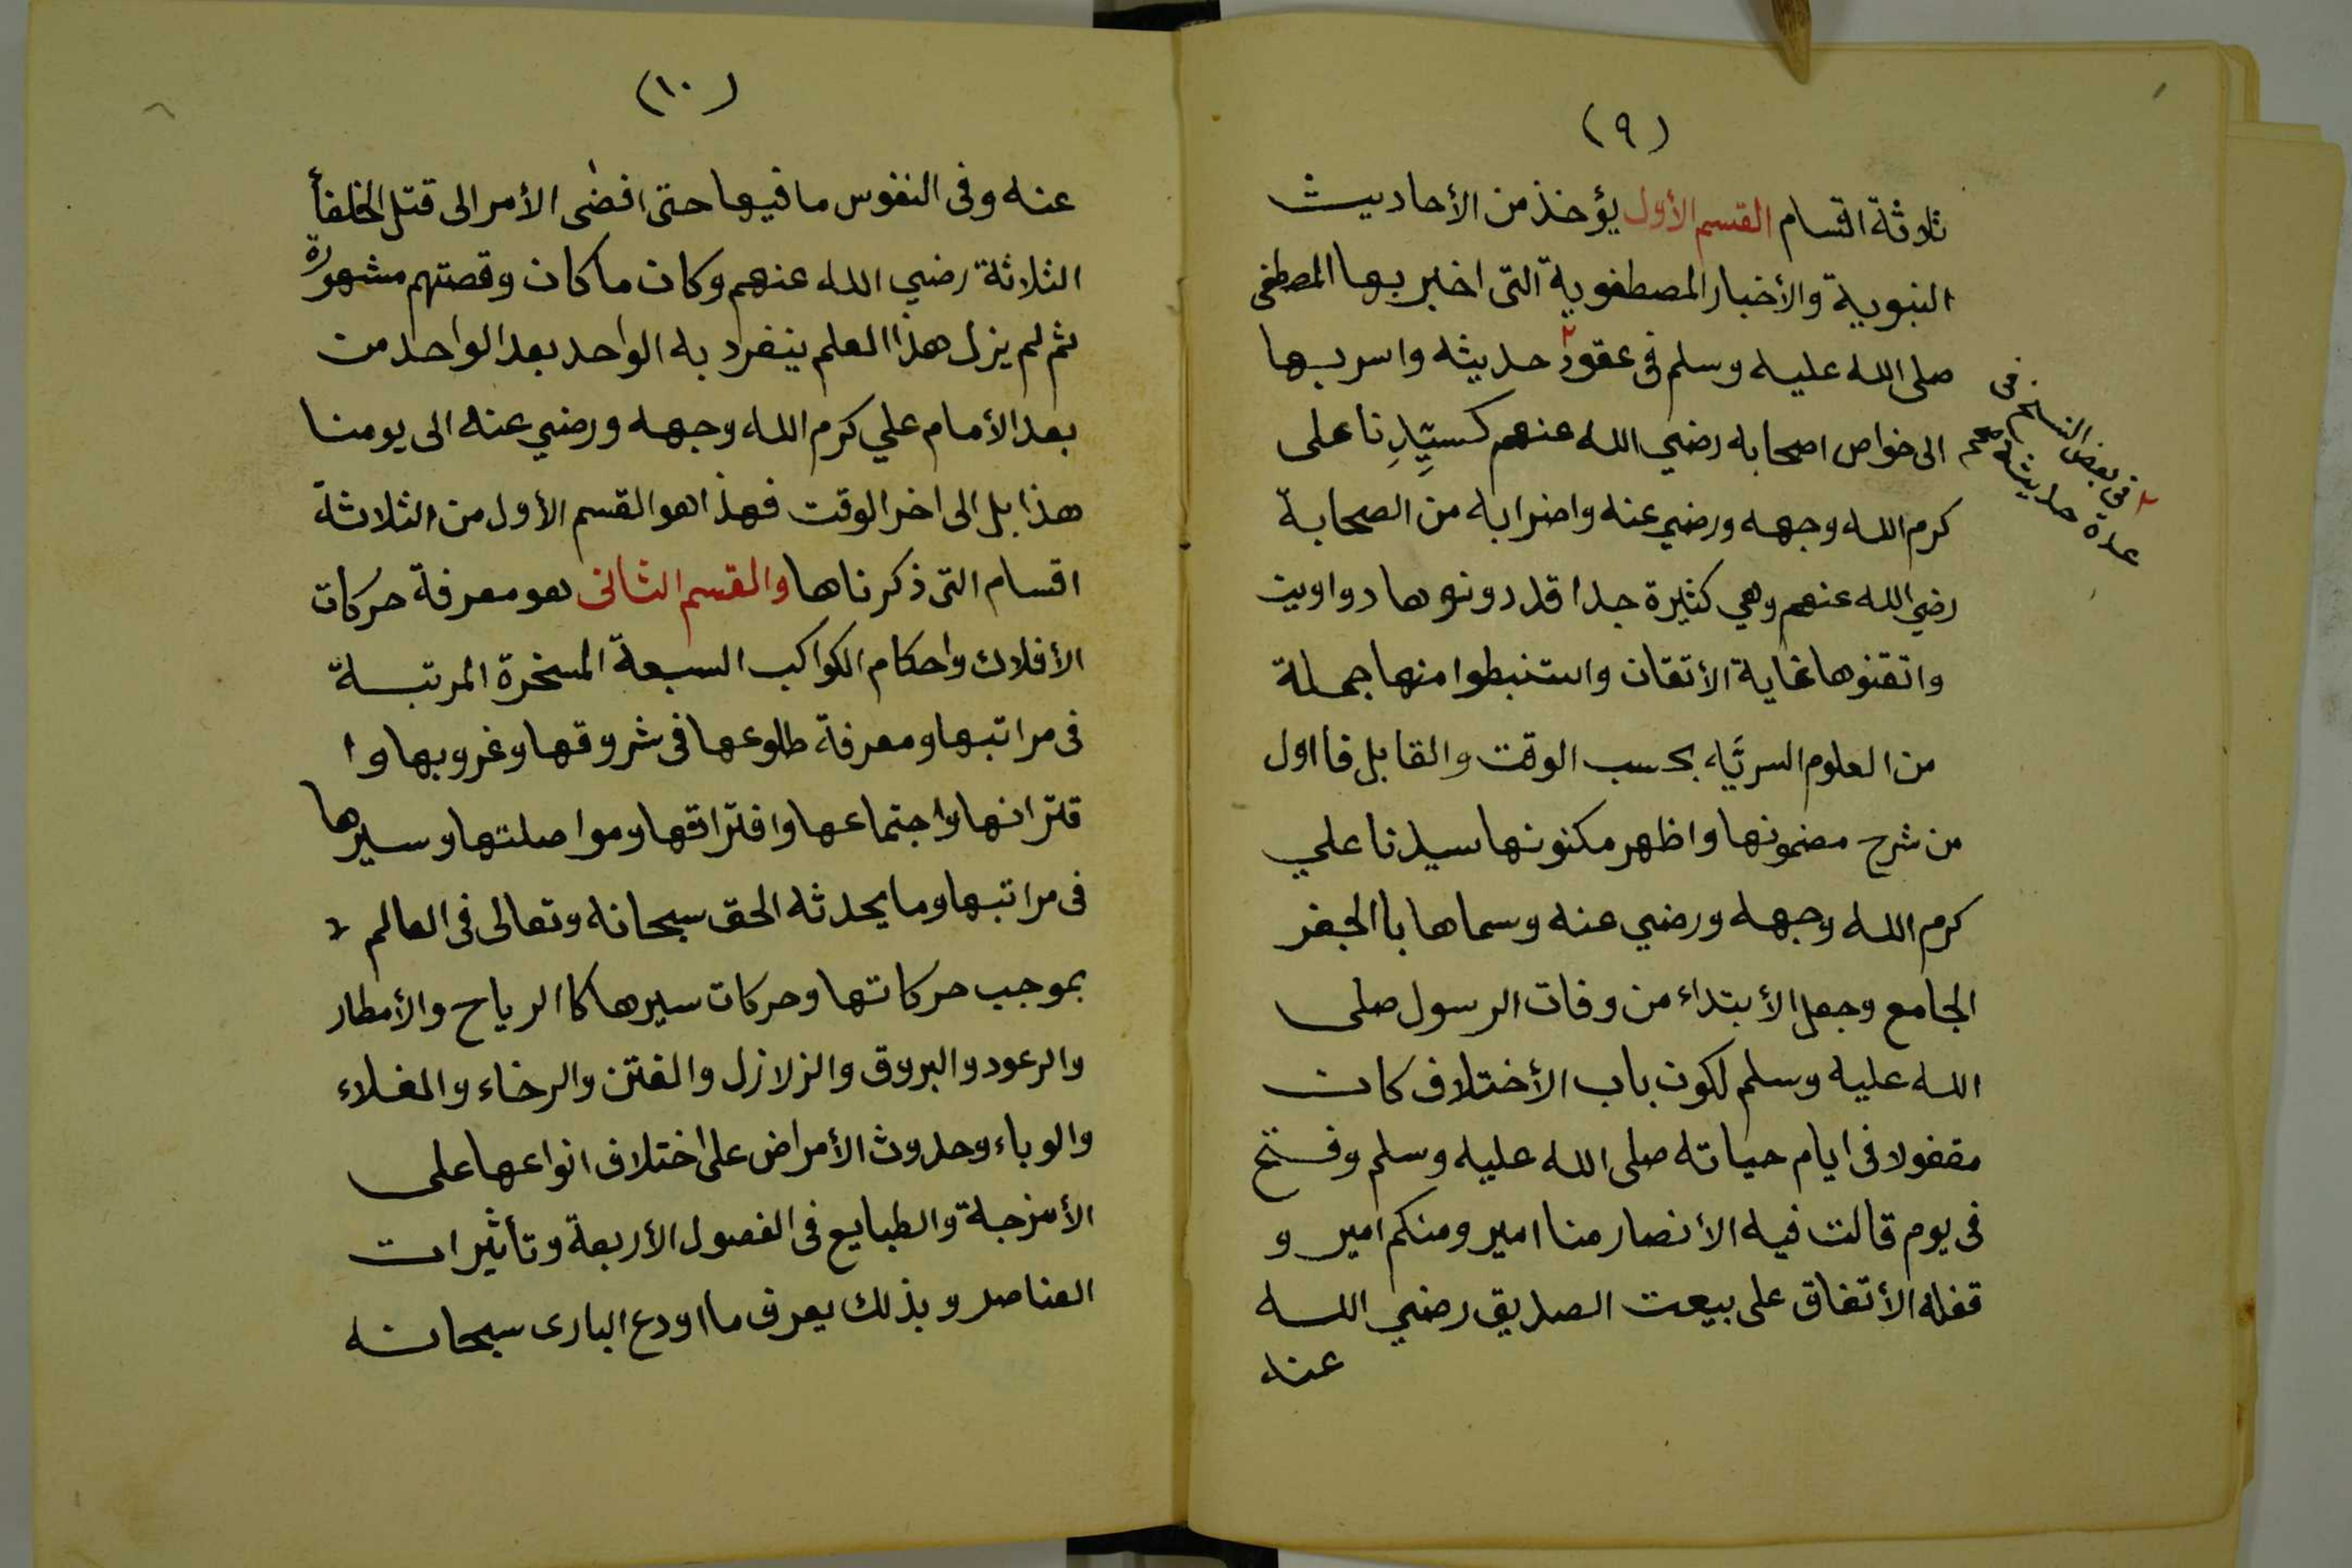 (٩)
ثلاثة اقسام القسم الأول يؤخذ من الأحاديث
النبوية والأخبار المصطفوية التى اخبر بها المصطفى
صلى الله عليه وسلم فى عقود٢ حديثه واسر بها
الى خواص اصحابه رضي الله عنهم كسيِّدِنا على
كرم الله وجهه ورضي عنه واضرابه من الصحابة
رضي الله عنهم وهي كثيرة جدا قد دونوها دواوين
واتقنوها غاية الأتقان واستنبطوا منها جملة
من العلوم السريَّه بحسب الوقت والقابل فااول
من شرح مضمونها واظهر مكنونها سيدنا علي
كرم الله وجهه ورضي عنه وسماها باالجفر
الجامع وجعل الأبتداء من وفات الرسول صلى
الله عليه وسلم لكون باب الأختلاف كان
مقفولا فى ايام حياته صلى الله عليه وسلم وفتح
فى يوم قالت فيه الأنصار منا امير ومنكم امير و
قفله الأتفاق على بيعت الصديق رضي الله
عنه
٢ فى بعض النسخ فى
عدة حديثه صحم
(١٠)
عنه وفى النفوس ما فيها حتى افضى الأمر الى قتل الخلفأ
الثلاثة رضي الله عنهم وكان ما كان وقصتهم مشهورة
ثم لم يزل هذا العلم ينفرد به الواحد بعد الواحد من
بعد الأمام علي كرم الله وجهه ورضي عنه الى يومنا
هذا بل الى اخر الوقت فهذا هو القسم الأول من الثلاثة
اقسام التى ذكرناها والقسم الثانى هو معرفة حركات
الأفلاك واحكام الكواكب السبعة المسخرة المرتبة
فى مراتبها ومعرفة طلوعها فى شروقها وغروبها وا
قترانها واجتماعها وافتراقها ومواصلتها وسيرها
فى مراتبها وما يحدثه الحق سبحانه وتعالى فى العالم
بموجب حركاتها وحركات سيرها كاالرياح والأمطار
والرعود والبروق والزلازل والفتن والرخاء والغلاء
والوباء وحدوث الأمراض على اختلاف انواعها على
الأمزجة والطبايع فى الفصول الأربعة وتأثيرات
العناصر وبذلك يعرف ما اودع البارى سبحانه